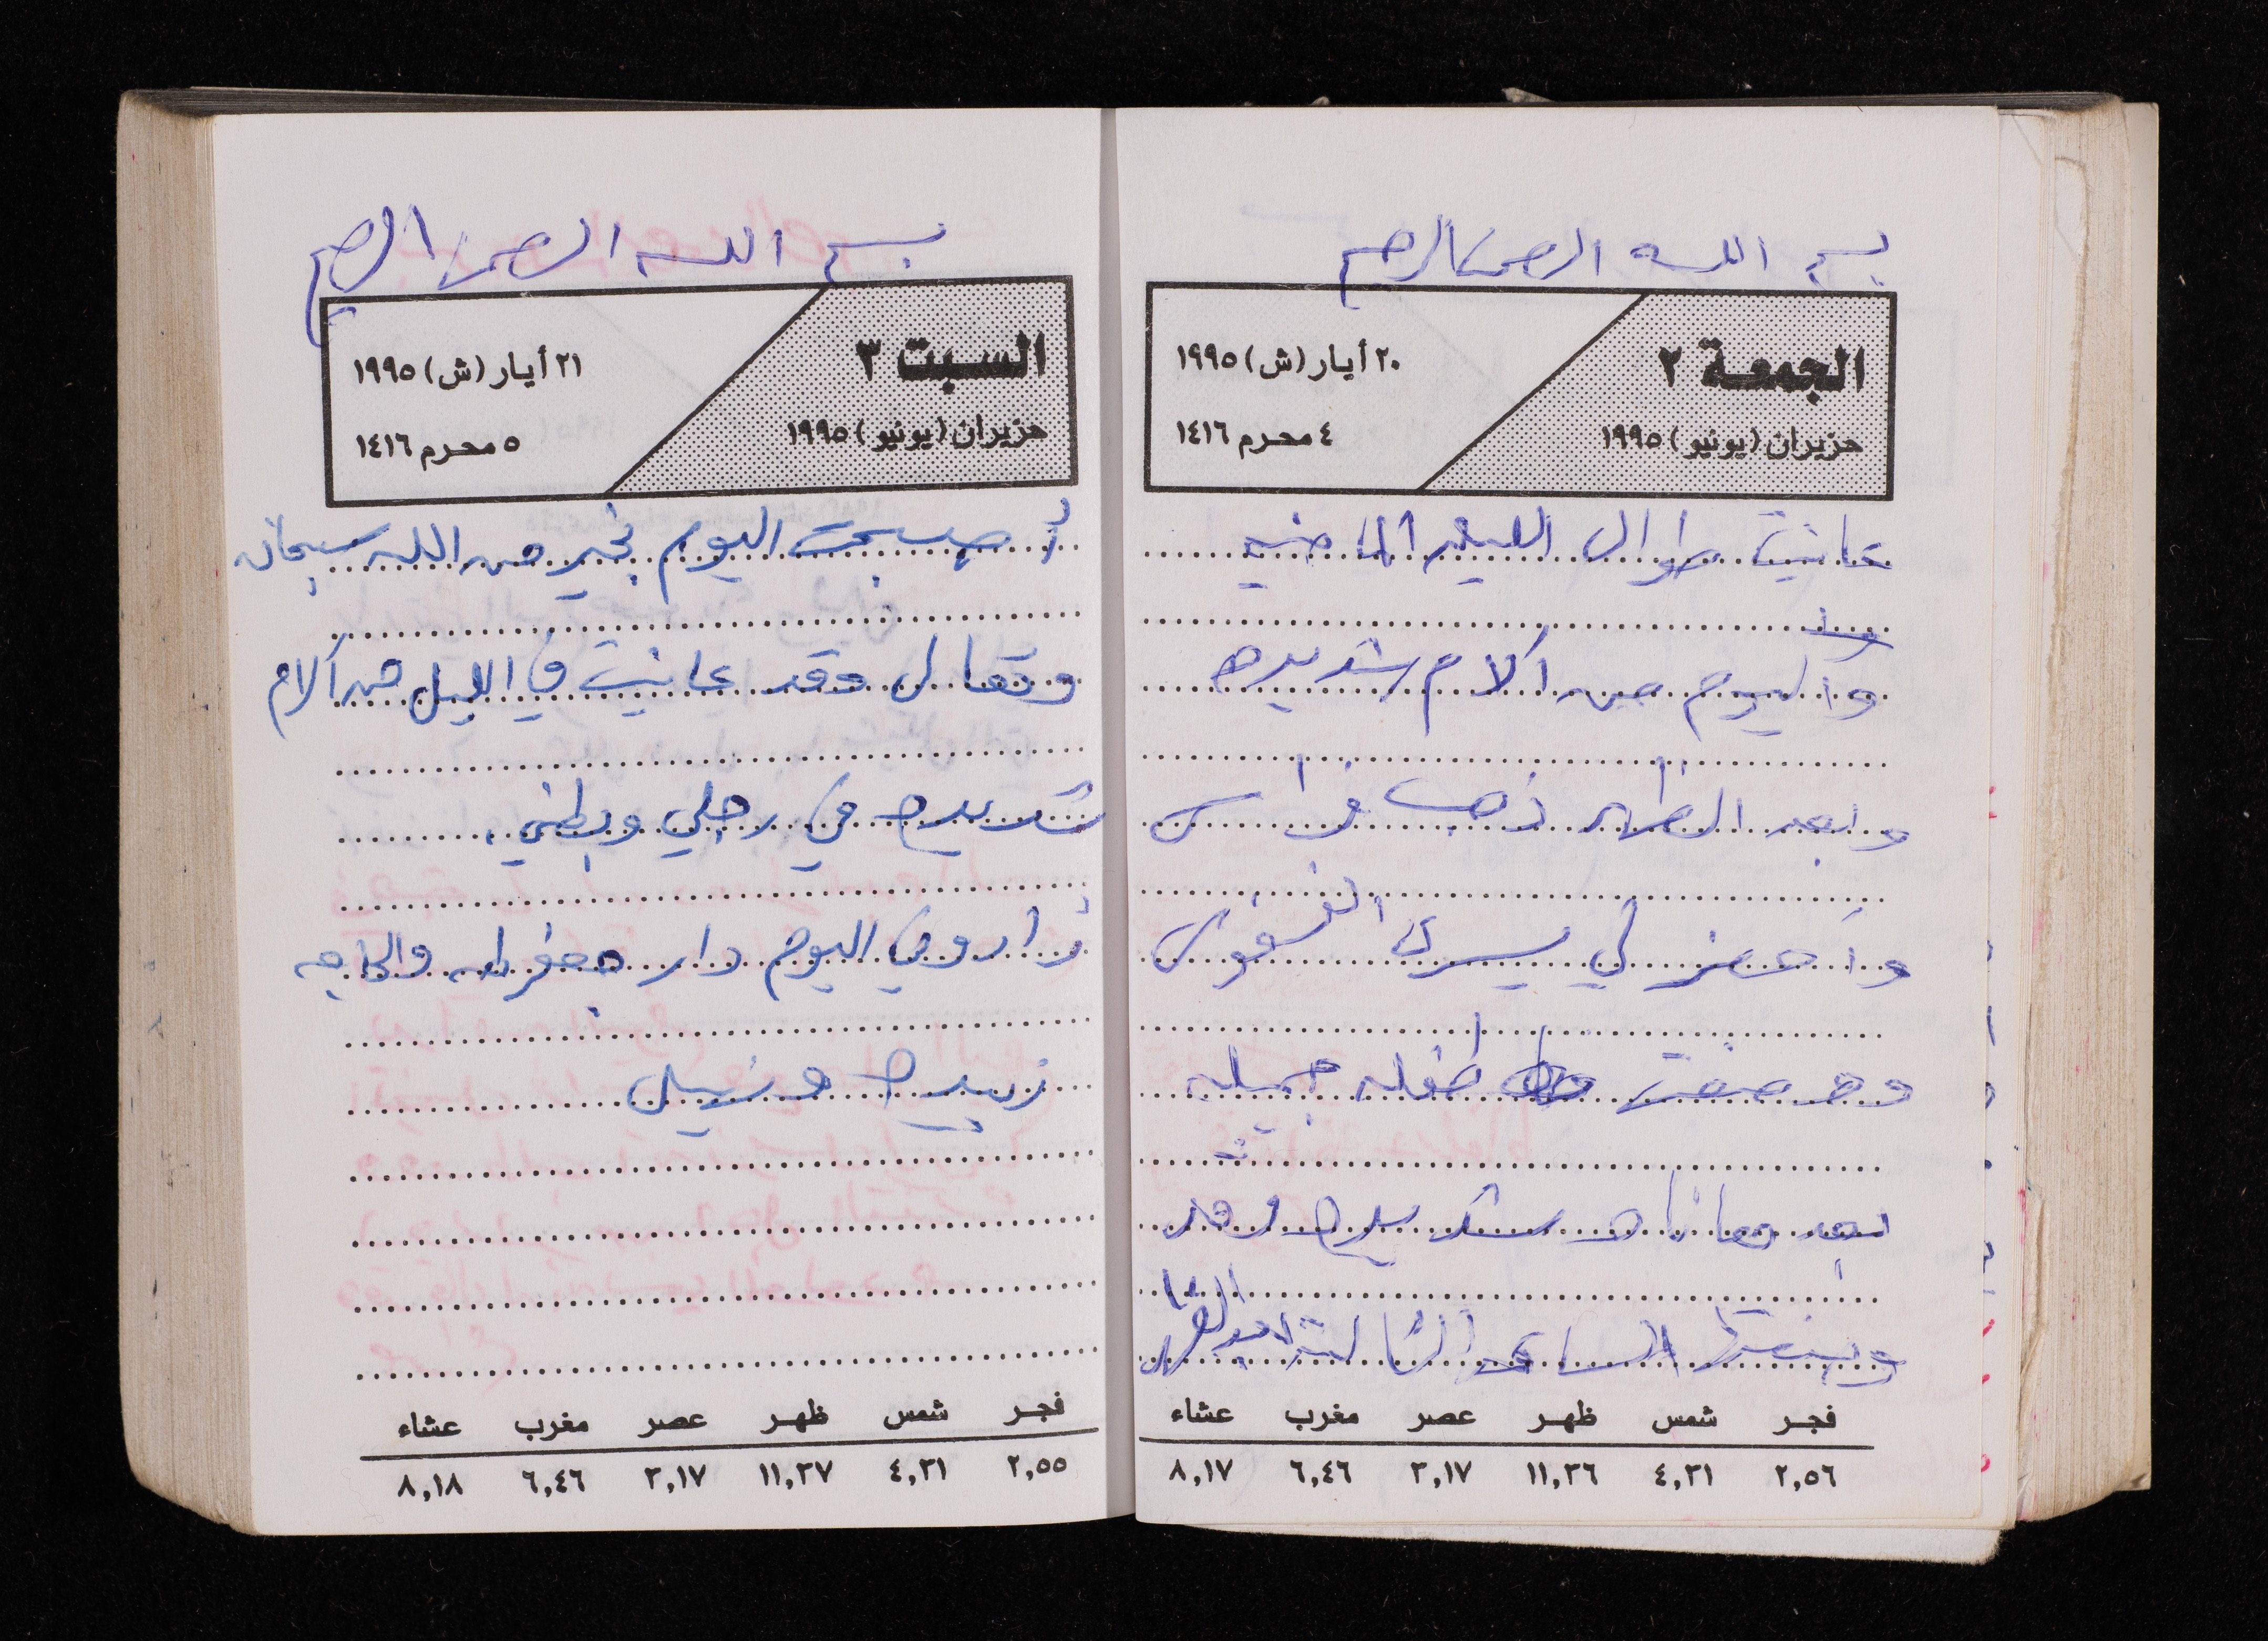 بسم الله الرحمن الرحيم
الجمعة ٢
حزيران (يونيو) ١٩٩٥
٢٠ أيار (ش) ١٩٩٥
٤ محرم ١٤١٦
عانيت طوال الليلة الماضيه
واليوم من آلام شديده
وبعد الظهر ذهب فراس
وأحضر لي يسرى
وضعت طفله جميله
بعد معاناه شديده وقد
الساعه الثالثة بعد الظهر
فجر شمس ظهر عصر مغرب عشاء
٢,٥٦ ٤,٣١ ١١,٣٦ ٣,١٧ ٦,٤٦ ٨,١٧
بسم الله الرحمن الرحيم
السبت ٣
حزيران (يونيو) ١٩٩٥
٢١ أيار (ش) ١٩٩٥
٥ محرم ١٤١٦
أصبحت اليوم بخير من الله سبحانه
وتعالى وقد عانيت في الليل من آلام
شديده في رجلي وبطني
زاروني اليوم دار جعفر طه والحاجه
زبيده ونبيل
فجر شمس ظهر عصر مغرب عشاء
٢,٥٥ ٤,٣١ ١١,٣٧ ٣,١٧ ٦,٤٦ ٨,١٨